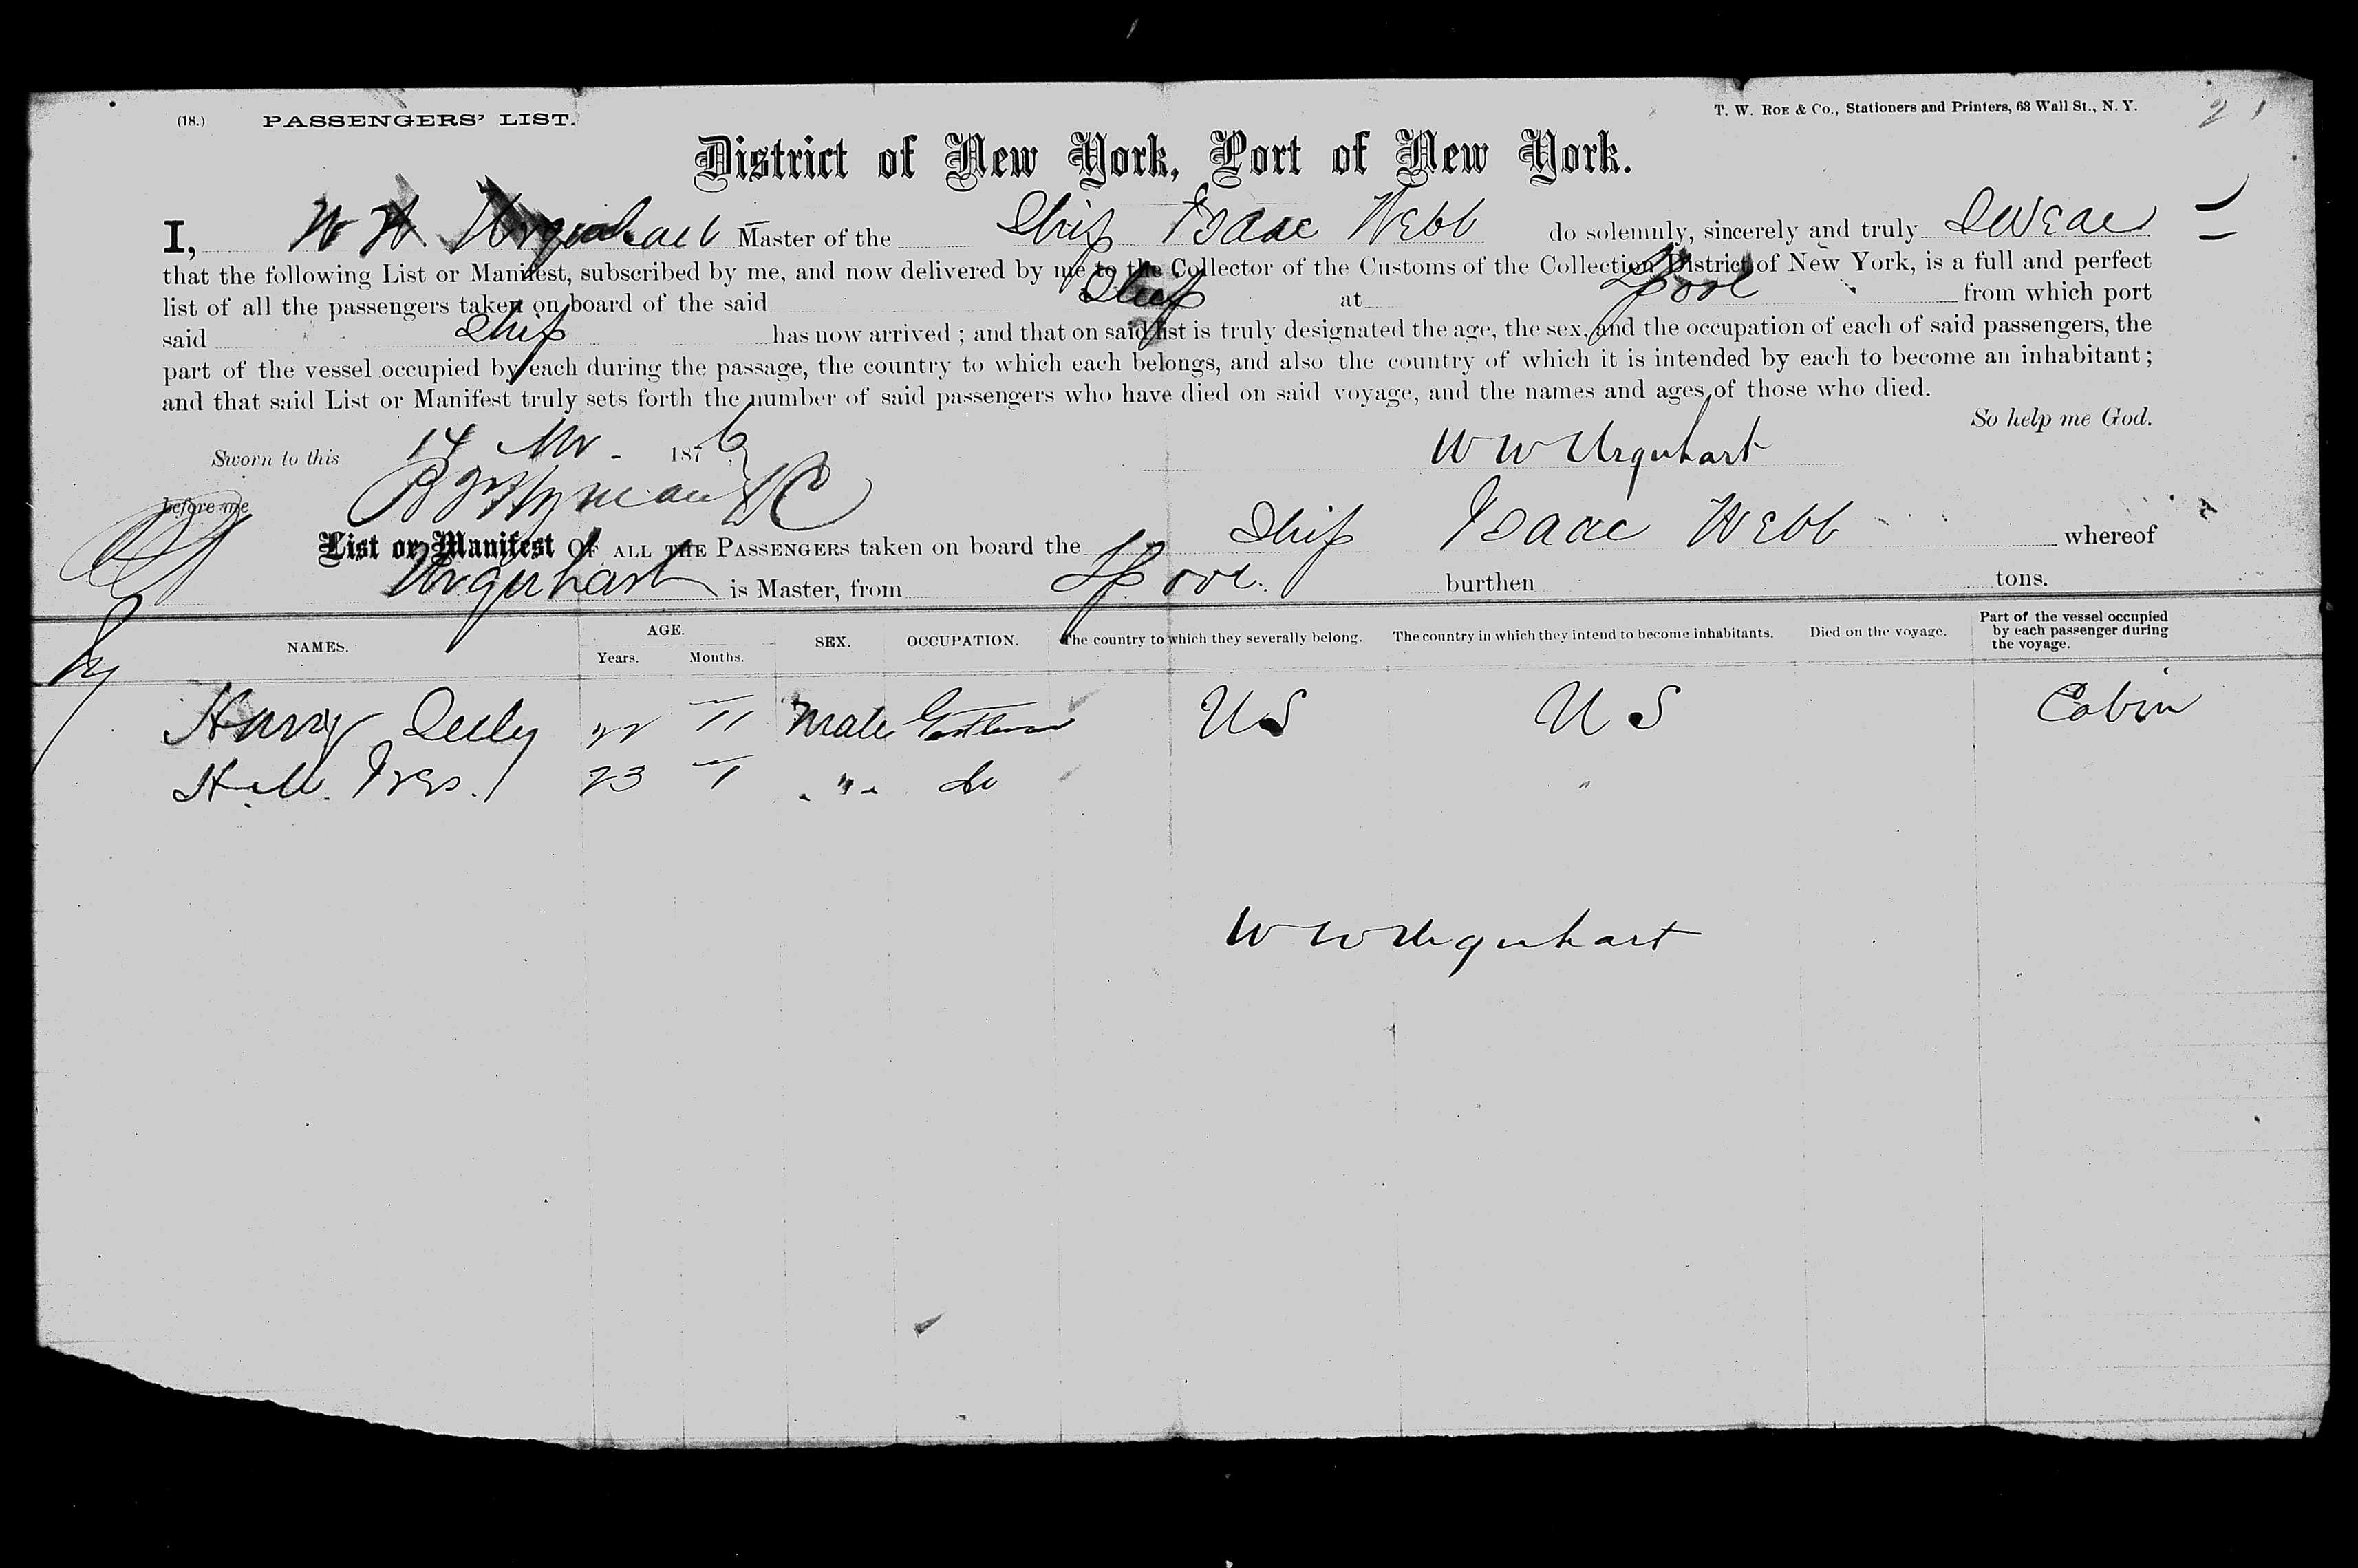 (18.) PASSENGERS' LIST. T. W. ROE & Co., Stationers and Printers, 63 Wall St., N. Y. 21
District of New York, Port of New York.
I, W W Urquhart Master of the Ship Isaac Webb do solemnly, sincerely and truly Swear
that the following List or Manifest, subscribed by me, and now delivered by me to the Collector of the Customs of the Collection District of New York, is a full and perfect
list of all the passengers taken on board of the said Ship at Lpool from which port
said Ship has now arrived ; and that on said list is truly designated the age, the sex, and the occupation of each of said passengers, the
part of the vessel occupied by each during the passage, the country to which each belongs, and also the country of which it is intended by each to become an inhabitant ;
and that said List or Manifest truly sets forth the number of said passengers who have died on said voyage, and the names and ages of those who died.
So help me God.
Sworn to this 14 1876
W W Urquhart
before me
List or Manifest OF ALL THE PASSENGERS taken on board the Ship Isaac Webb whereof
Urquhart is Master, from Lpool. burthen tons.
NAMES. AGE. Years. Months. SEX. OCCUPATION. The country to which they severally belong. The country in which they intend to become inhabitants. Died on the voyage. Part of the vessel occupied by each passenger during the voyage.
Harry 22 11 Male Gentleman U S U S Cabin
H. M. Ives. 23 1 " do "
W W Urquhart